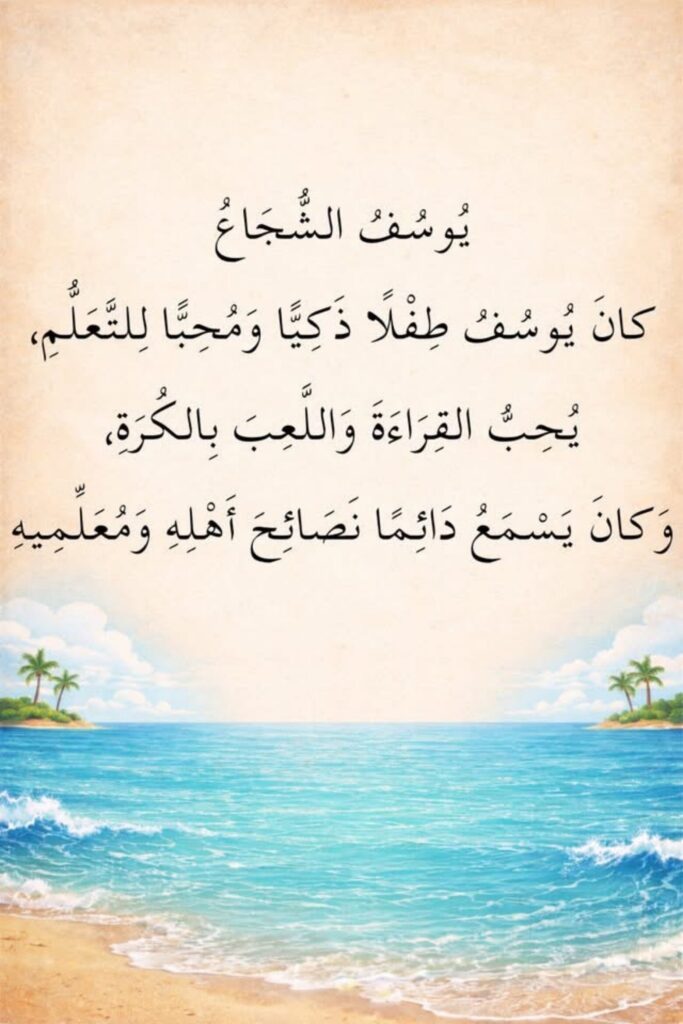 يُوسُفُ الشُّجَاعُ
كانَ يُوسُفُ طِفْلًا ذَكِيًّا وَمُحِبًّا لِلتَّعَلُّمِ،
يُحِبُّ القِرَاءَةَ وَاللَّعِبَ بِالكُرَةِ،
وَكانَ يَسْمَعُ دَائِمًا نَصَائِحَ أَهْلِهِ وَمُعَلِّمِيهِ